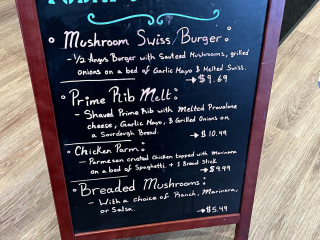 Mushroom Swiss Burger:
- 1/2 Angus Burger with Sauteed Mushrooms, grilled
onions on a bed of Garlic Mayo & Melted Swiss.
→ $9.69
Prime Rib Melt:
- Shaved Prime Rib with Melted Provolone
cheese, Garlic Mayo, & Grilled Onions on
a Sourdough Bread.
→ $10.49
Chicken Parm:
- Parmesan crusted chicken topped with Marinara
on a bed of Spaghetti. + 1 Bread Stick
→ $9.99
Breaded Mushrooms:
- With a choice of Ranch, Marinara,
or Salsa.
→ $5.49